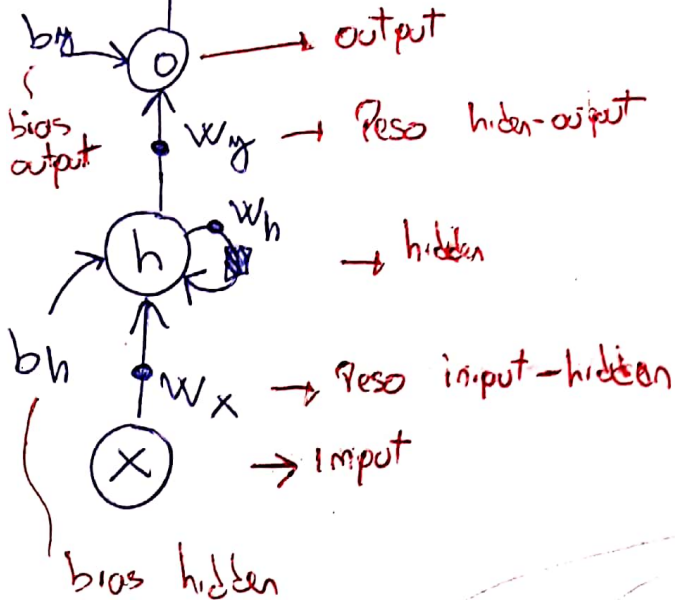 by
o
output
bias
output
Wy
Peso hiden-output
h
Wh
hidden
bh
Wx
Peso input-hidden
X
Imput
bias hidden